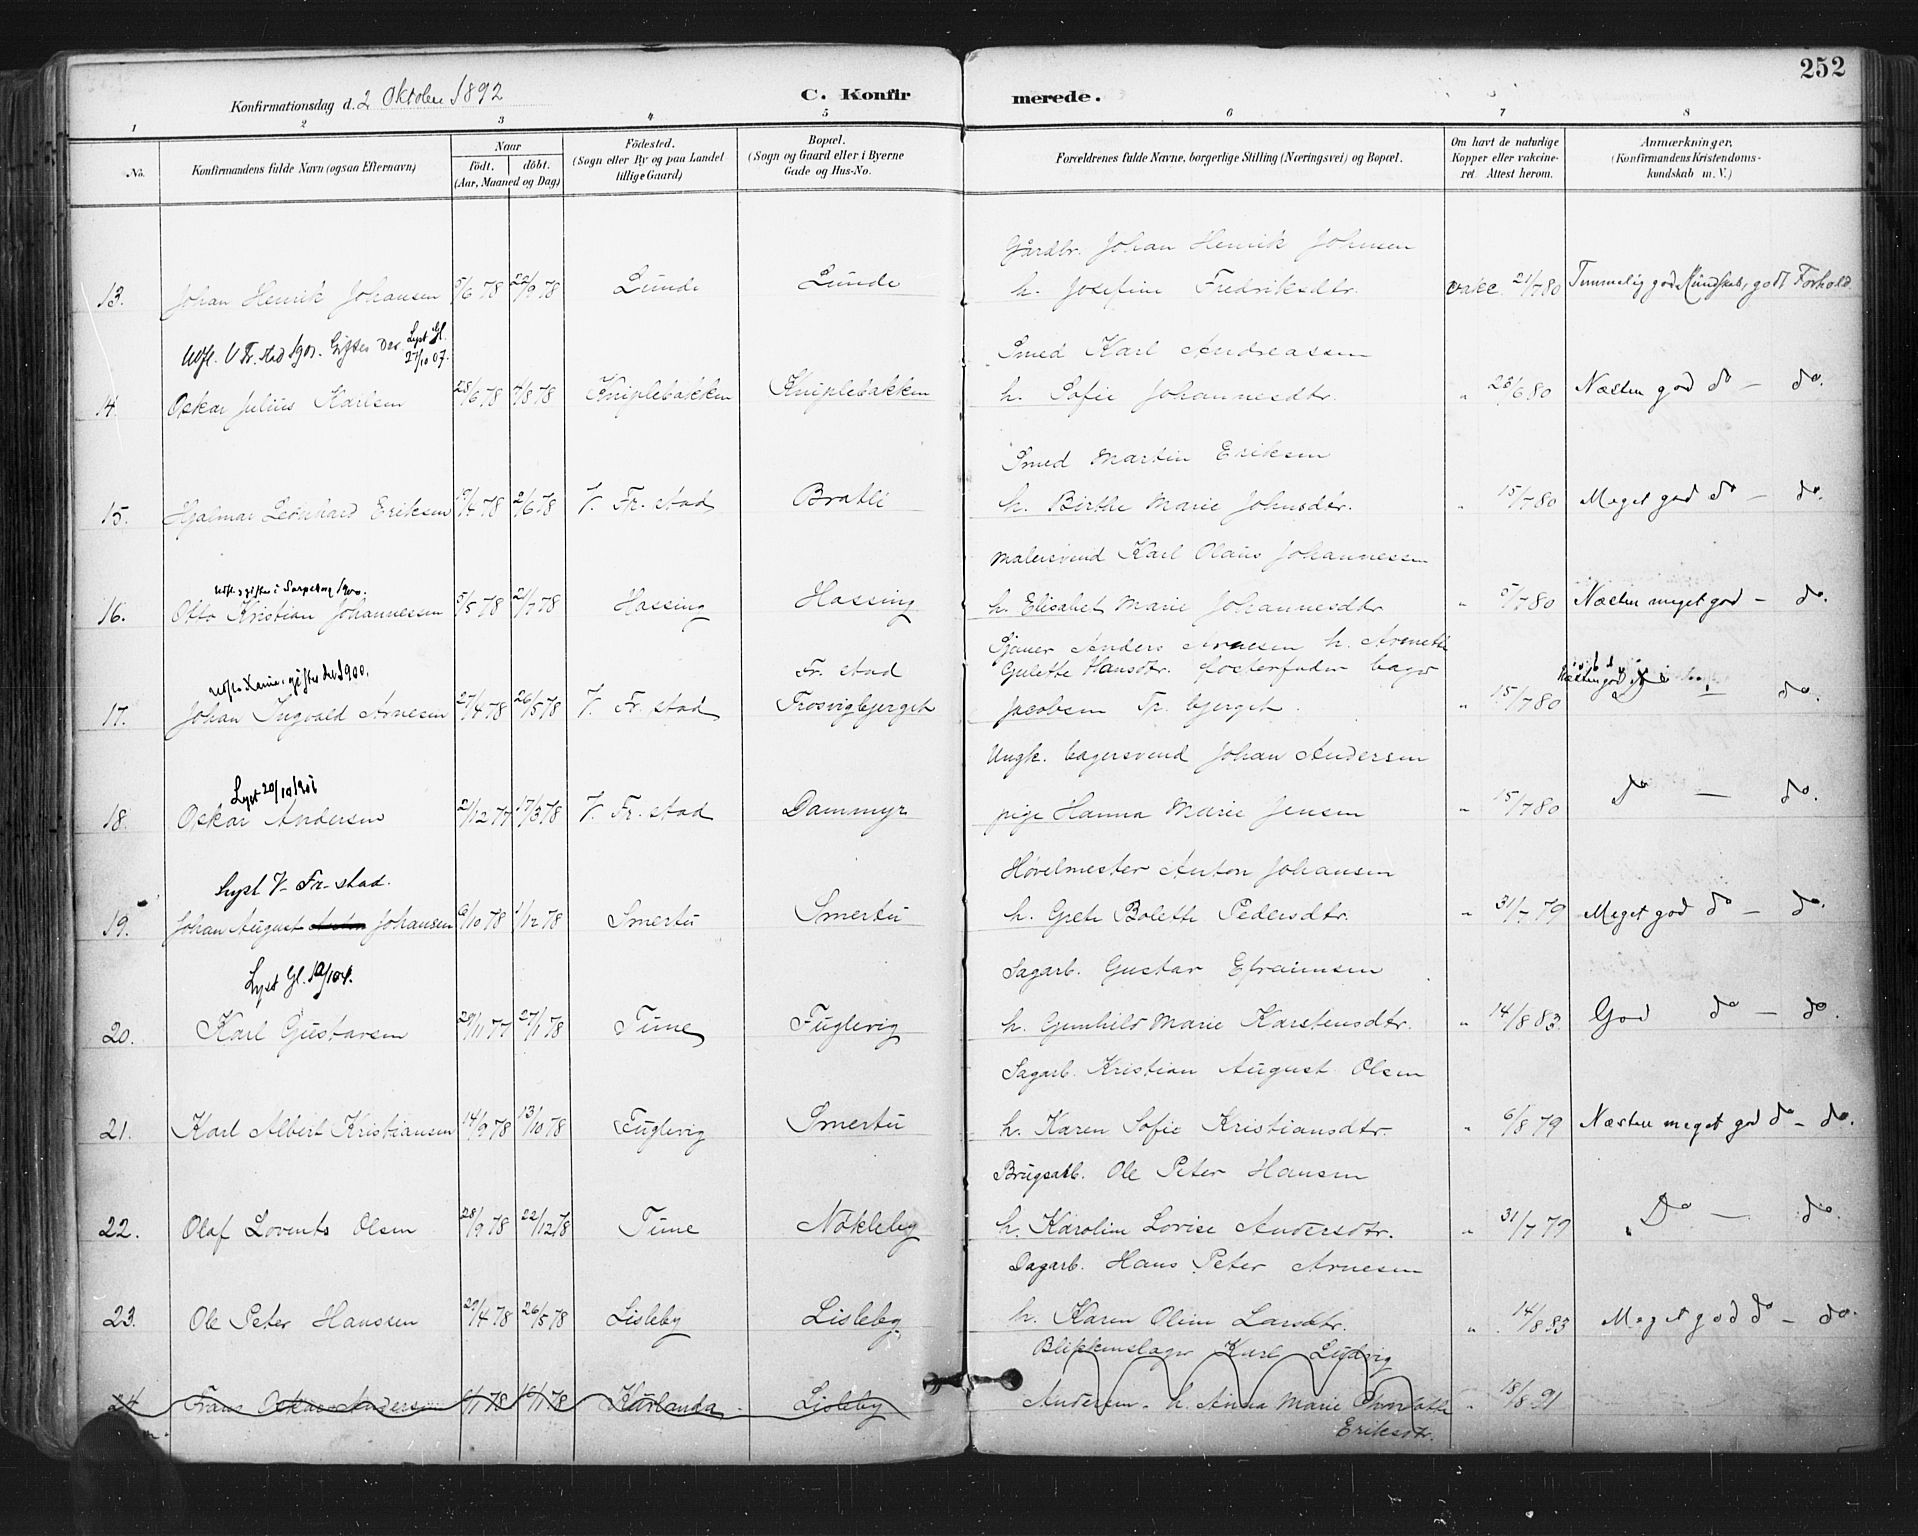 252
Konfirmationsdag d. 2 Oktober 1892
C. Konfirmerede.
1 2 3 4 5 6 7 8
No. Konfirmandens fulde Navn (ogsaa Efternavn) Naar födt. döbt. (Aar, Maaned og Dag) Födested. (Sogn eller By og paa Landet tillige Gaard) Bopæl. (Sogn og Gaard eller i Byerne Gade og Hus-No. Forældrenes fulde Navne, borgerlige Stilling (Næringsvei) og Bopæl. Om havt de naturlige Kopper eller vakcineret. Attest herom. Anmærkninger, (Konfirmandens Kristendomskundskab m. V.)
Gårdbr. Johan Henrik Johnsen
13. Johan Henrik Johansen 5/6 78 22/9 78 Lunde Lunde h. Josefine Fredriksdtr. vakc. 21/7 80 Temmelig god Kundskab, godt Forhold.
Udfl. V. Fr.stad 1901. Giftes der. Lyst Gl. 27/10 07.
Smed Karl Andreassen
14. Oskar Julius Karlsen 28/6 78 4/8 78 Kniplebakken Kniplebakken h. Sofie Johannesdtr. " 26/6 80 Næsten god do – do.
Smed Martin Eriksen
15. Hjalmar Leonhard Eriksen 17/4 78 2/6 78 V. Fr.stad Bratli h. Birthe Marie Johnsdtr. " 15/7 80 Meget god do – do.
Malersvend Karl Olaus Johannessen
16. Otto Kristian Johannessen 5/5 78 21/7 78 Hassing Hassing h. Elisabet Marie Johannesdtr " 5/7 80 Næsten meget god – do.
Sjauer Anders Arnesen h. Arnette
Fr. stad Gulette Hansdtr. fosterfader bager
17. Johan Ingvald Arnesen 27/4 78 26/5 78 V. Fr. stad Trosvigbjerget Jacobsen Tr. bjerget. " 15/7 80 Næsten god – do.
Ungk. bagersvend Johan Andersen
18. Oskar Andersen 21/12 77 17/3 78 V. Fr. stad Dammyr pige Hanna Marie Jensen " 15/7 80 Do – do.
Lyst V. Fr-stad.
Høvelmester Anton Johansen
19. Johan August Johansen 6/10 78 1/12 78 Smertu Smertu h. Grete Bolette Pedersdtr. " 31/7 79 Meget god do – do.
Lyst Gl.
Sagarb. Gustav Efraimsen
20. Karl Gustavsen 29/11 77 27/1 78 Tune Fuglevig h. Gunhild Marie Karstensdtr. " 14/8 83 God do – do.
Sagarb. Kristian August Olsen
21. Karl Albert Kristiansen 14/9 78 13/10 78 Fuglevig Smertu h. Karen Sofie Kristiansdtr. " 6/8 79 Næsten meget god do – do.
Brugsarb. Ole Peter Hansen
22. Olaf Lorents Olsen 28/9 78 22/12 78 Tune Nökleby h. Karolin Lovise Andersdtr. " 31/7 79 Do – do.
Dagarb. Hans Peter Arnesen
23. Ole Peter Hanssen 29/4 78 26/5 78 Lisleby Lisleby h. Karen Oline Larsdtr. " 14/8 83 Meget god do – do.
Blikkenslager Karl Ludvig
24 Frans Oskar Andersen Kurlanda Lisleby Andersen h. Anna Marie Charlotte " 18/8 91
Eriksdtr.